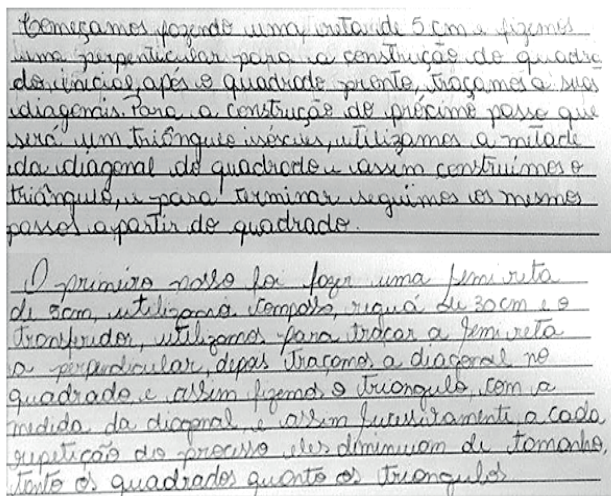 Começamos fazendo uma reta de 5 cm e fizemos
uma perpenticular para a construção do quadra
do inicial, após o quadrado pronto, traçamos a suas
diagonais. Para a construção do próximo passo que
será um triângulo isóscies, utilizamos a metade
da diagonal do quadrado e assim construimos o
triângulo, e para terminar seguimos os mesmos
passos a partir do quadrado.
O primeiro passo foi fazer uma semi reta
de 5cm, utilizamos compasso, reguá de 30cm e o
transferidor, utilizamos para traçar a semi reta
a perpendicular, depois traçamos a diagonal no
quadrado e assim fizemos o triangulo, com a
medida da diagonal, e assim sucessivamente, a cada
repetição do processo eles diminuiam de tamanho,
tanto os quadrados quanto os triangulos